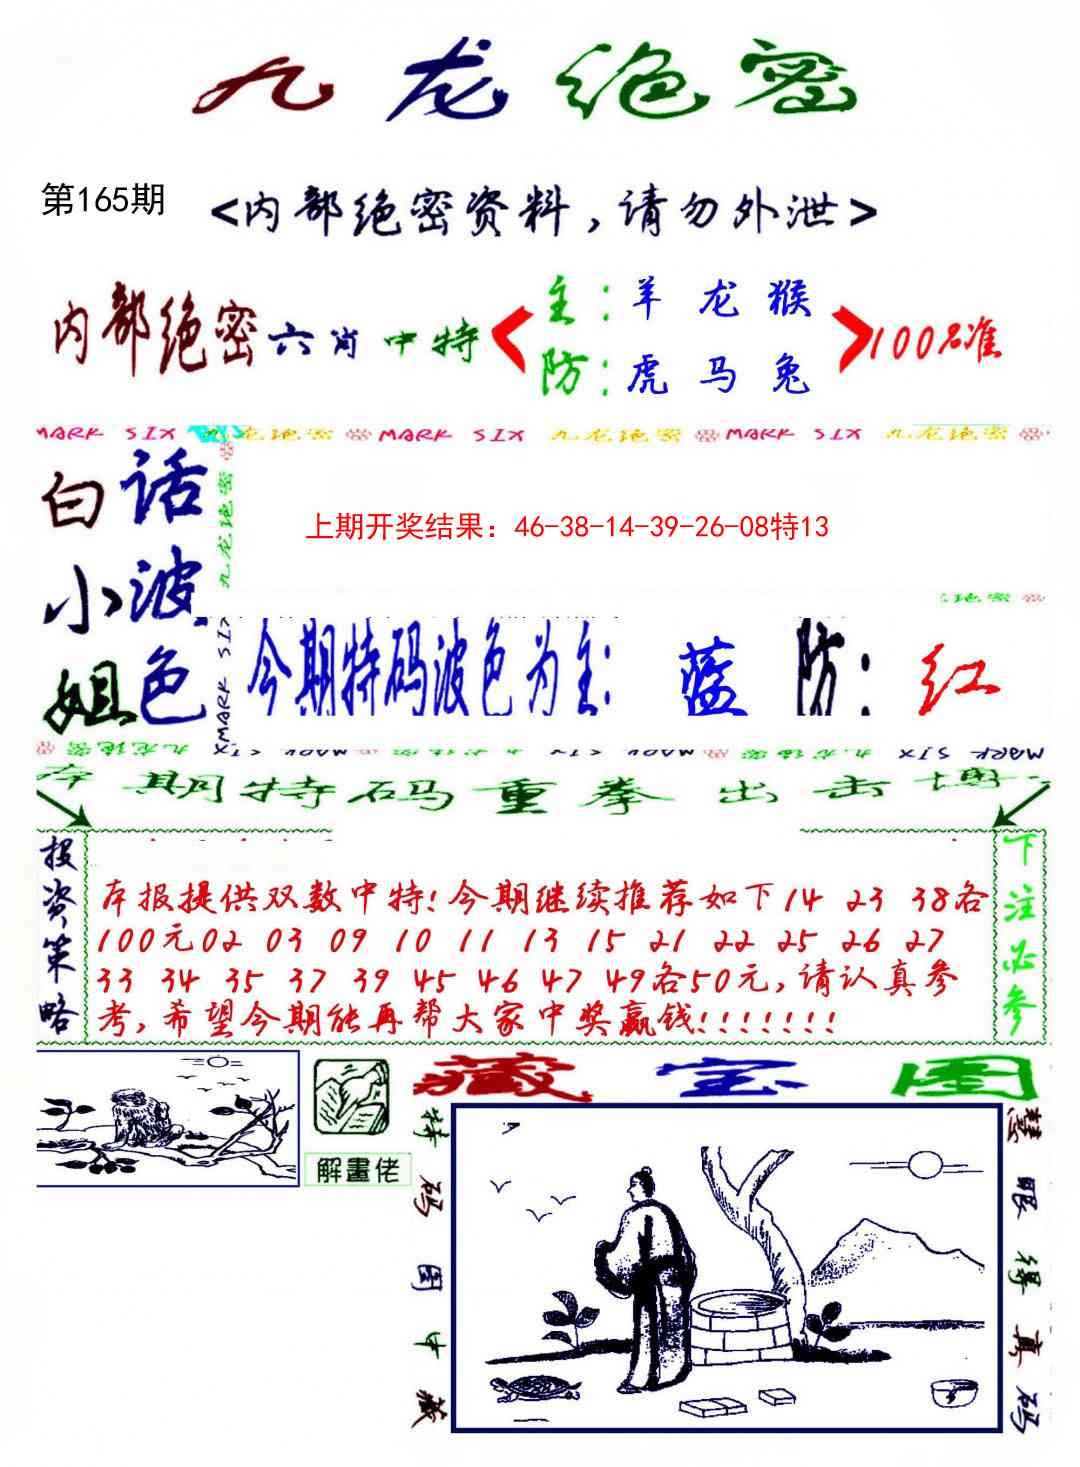 九龙绝密
第165期
<内部绝密资料,请勿外泄>
内部绝密六肖中特
主:羊 龙 猴
防:虎 马 兔
100%准
MARK SIX 九龙绝密 MARK SIX 九龙绝密 MARK SIX 九龙绝密
白话
小波
姐色
九龙绝密
MARK SIX
上期开奖结果：46-38-14-39-26-08特13
今期特码波色为主: 蓝 防: 红
MARK SIX 九龙绝密 MARK SIX 九龙绝密 MARK SIX 九龙绝密
本期特码重拳出击博
投资策略
本报提供双数中特!今期继续推荐如下14 23 38各
100元02 03 09 10 11 13 15 21 22 25 26 27
33 34 35 37 39 45 46 47 49各50元,请认真参
考,希望今期能再帮大家中奖赢钱!!!!!!!
下注必参
解畫佬
藏宝图
特码图中藏
慧眼得真码